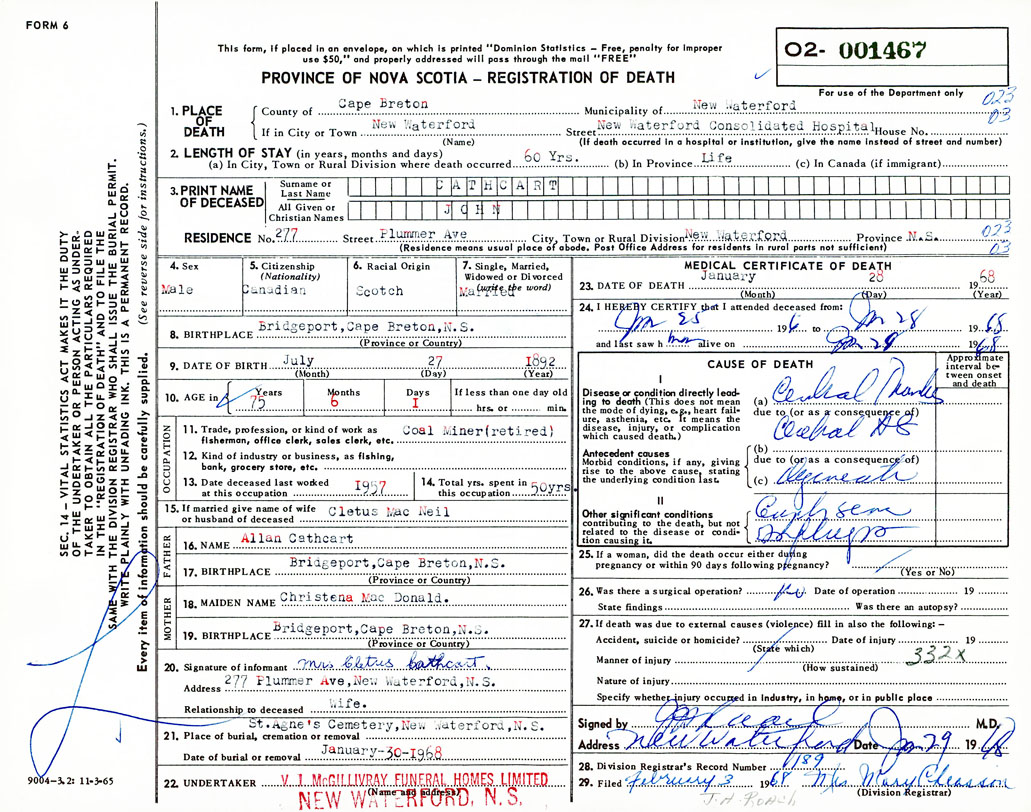 FORM 6
This form, if placed in an envelope, on which is printed "Dominion Statistics – Free, penalty for improper
use $50," and properly addressed will pass through the mail "FREE"
PROVINCE OF NOVA SCOTIA – REGISTRATION OF DEATH
O2- 001467
For use of the Department only
023
03
SEC. 14 – VITAL STATISTICS ACT MAKES IT THE DUTY
OF THE UNDERTAKER OR PERSON ACTING AS UNDER-
TAKER TO OBTAIN ALL THE PARTICULARS REQUIRED
IN THE "REGISTRATION OF DEATH" AND TO FILE THE
SAME WITH THE DIVISION REGISTRAR WHO SHALL ISSUE THE BURIAL PERMIT.
WRITE PLAINLY WITH UNFADING INK. THIS IS A PERMANENT RECORD.
Every item of information should be carefully supplied. (See reverse side for instructions.)
1. PLACE OF DEATH County of Cape Breton Municipality of New Waterford
If in City or Town New Waterford Street New Waterford Consolidated Hospital House No.
(Name) (If death occurred in a hospital or institution, give the name instead of street and number)
2. LENGTH OF STAY (in years, months and days)
(a) In City, Town or Rural Division where death occurred 60 Yrs. (b) In Province Life (c) In Canada (if immigrant)
3. PRINT NAME OF DECEASED Surname or Last Name CATHCART
All Given or Christian Names JOHN
RESIDENCE No. 277 Street Plummer Ave City, Town or Rural Division New Waterford Province N.S. 023
(Residence means usual place of abode. Post Office Address for residents in rural parts not sufficient) 03
4. Sex 5. Citizenship (Nationality) 6. Racial Origin 7. Single, Married, Widowed or Divorced (write the word)
Male Canadian Scotch Married
8. BIRTHPLACE Bridgeport, Cape Breton, N.S.
(Province or Country)
9. DATE OF BIRTH July 27 1892
(Month) (Day) (Year)
10. AGE in Years Months Days If less than one day old
75 6 1 hrs. or min.
OCCUPATION
11. Trade, profession, or kind of work as fisherman, office clerk, sales clerk, etc. Coal Miner(retired)
12. Kind of industry or business, as fishing, bank, grocery store, etc.
13. Date deceased last worked at this occupation 1957 14. Total yrs. spent in this occupation 50yrs.
15. If married give name of wife or husband of deceased Cletus Mac Neil
FATHER
16. NAME Allan Cathcart
17. BIRTHPLACE Bridgeport, Cape Breton, N.S.
(Province or Country)
MOTHER
18. MAIDEN NAME Christena Mac Donald.
19. BIRTHPLACE Bridgeport, Cape Breton, N.S.
(Province or Country)
20. Signature of informant Mrs Cletus Cathcart.
Address 277 Plummer Ave, New Waterford, N.S.
Relationship to deceased Wife.
St. Agne's Cemetery, New Waterford, N.S.
21. Place of burial, cremation or removal
Date of burial or removal January-30-1968
22. UNDERTAKER V. J. McGILLIVRAY FUNERAL HOMES LIMITED
(Name and address)
NEW WATERFORD, N.S.
9004-3.2: 11-3-65
MEDICAL CERTIFICATE OF DEATH
23. DATE OF DEATH January 28 1968
(Month) (Day) (Year)
24. I HEREBY CERTIFY that I attended deceased from:
Jan 25 196 to Jan 28 1968
and last saw him alive on Jan 28 1968
CAUSE OF DEATH
Approximate interval between onset and death
I
Disease or condition directly leading to death (This does not mean the mode of dying, e.g., heart failure, asthenia, etc. It means the disease, injury, or complication which caused death.)
(a) Cerebral
due to (or as a consequence of)
Cerebral AS
Antecedent causes
Morbid conditions, if any, giving rise to the above cause, stating the underlying condition last.
(b)
due to (or as a consequence of)
(c)
II
Other significant conditions contributing to the death, but not related to the disease or condition causing it.
25. If a woman, did the death occur either during pregnancy or within 90 days following pregnancy?
(Yes or No)
26. Was there a surgical operation? no Date of operation 19
State findings Was there an autopsy?
27. If death was due to external causes (violence) fill in also the following: –
Accident, suicide or homicide? Date of injury 19
(State which)
Manner of injury 332X
(How sustained)
Nature of injury
Specify whether injury occurred in industry, in home, or in public place
Signed by M.D.
Address New Waterford Date Jan 29 1968
28. Division Registrar's Record Number 1189
29. Filed February 3 1968 Mrs. Mary Chiasson
(Division Registrar)
J.H. ROACH